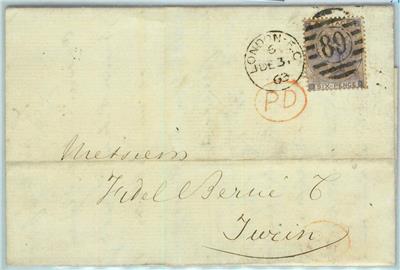 LONDON·E.C
6
DE 3
63
89
SIX PENCE
PD
Messieurs
Fidel Berné &
Turin